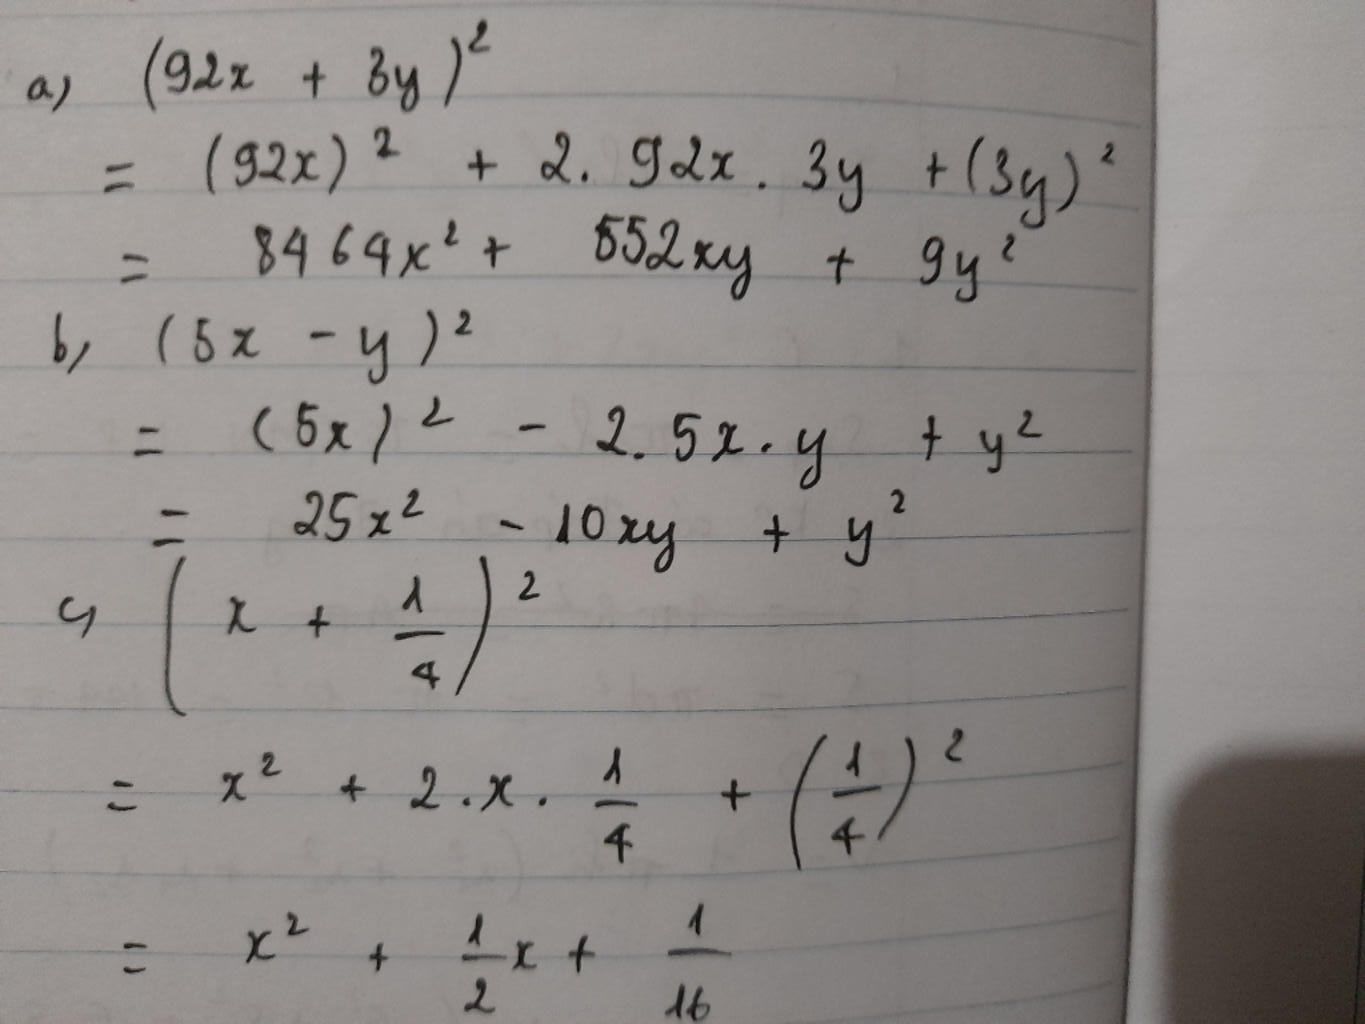 a) (92x + 3y)²
= (92x)² + 2. 92x. 3y + (3y)²
= 8464x² + 552xy + 9y²
b, (5x - y)²
= (5x)² - 2. 5x. y + y²
= 25x² - 10xy + y²
c, (x + 1/4)²
= x² + 2.x. 1/4 + (1/4)²
= x² + 1/2 x + 1/16